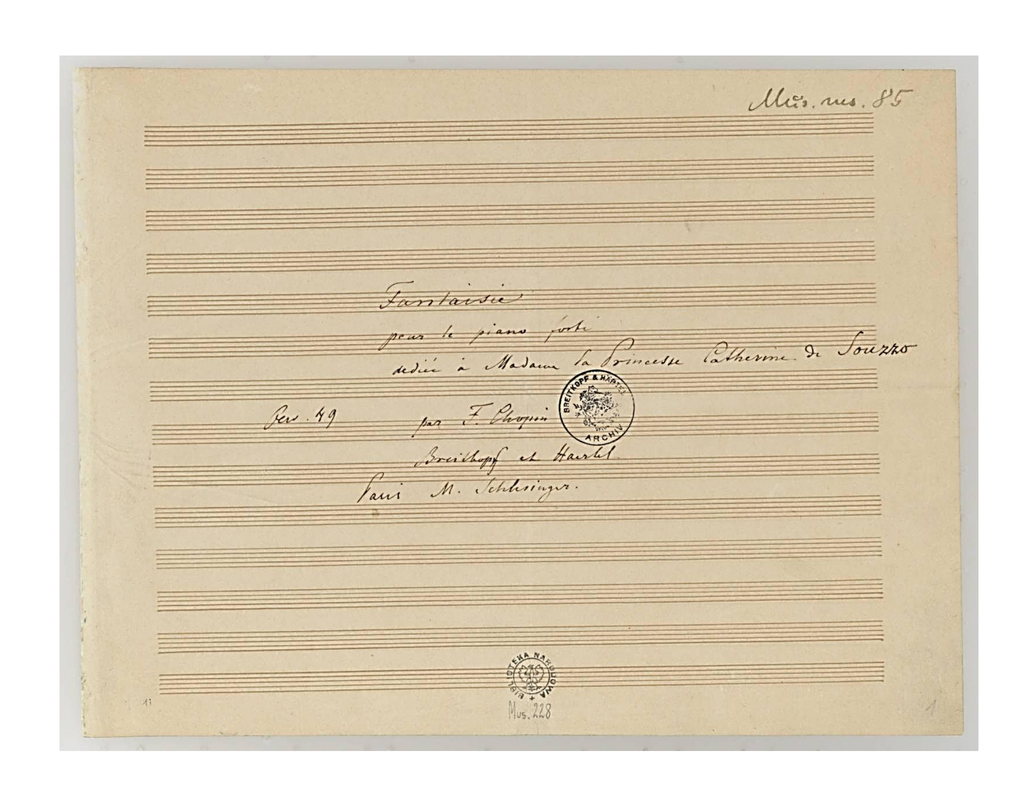 Mus. ms. 85
Fantaisie
pour le piano forte
dediée à Madame la Princesse Catherine de Souzzo
BREITKOPF & HÄRTEL
ARCHIV
49
par F. Chopin
Breitkopf et Haertel
Paris M. Schlesinger.
BIBLIOTEKA NARODOWA
Mus. 228
13
1